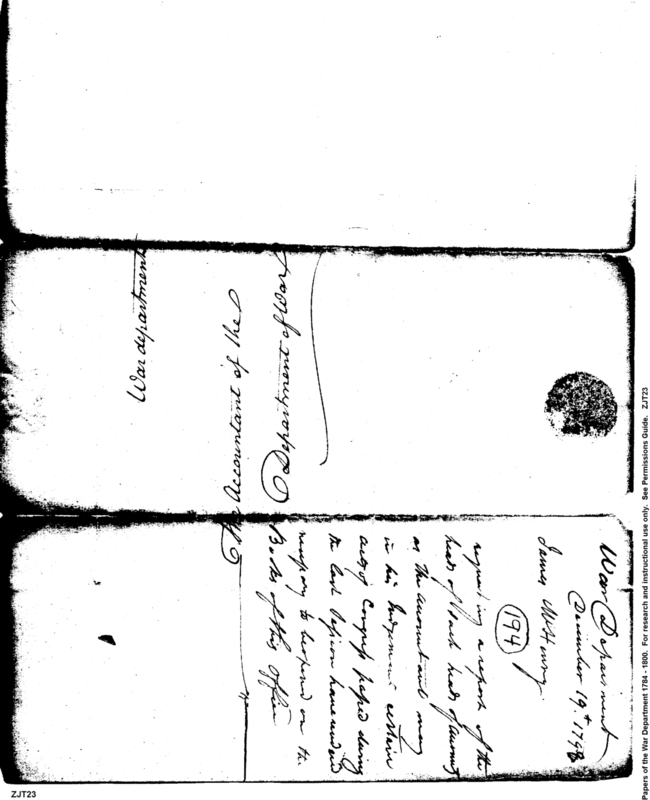 War department
The Accountant of the
Department of War
War Department
December 19th 1798
James McHenry
194
requesting a report of the
heads of such heads of account
as the accountant may
in his Judgement certain
acts of Congress passed during
the last Session have rendered
necessary to be opened on the
Books of his Office
Papers of the War Department 1784 - 1800. For research and instructional use only. See Permissions Guide. ZJT23
ZJT23